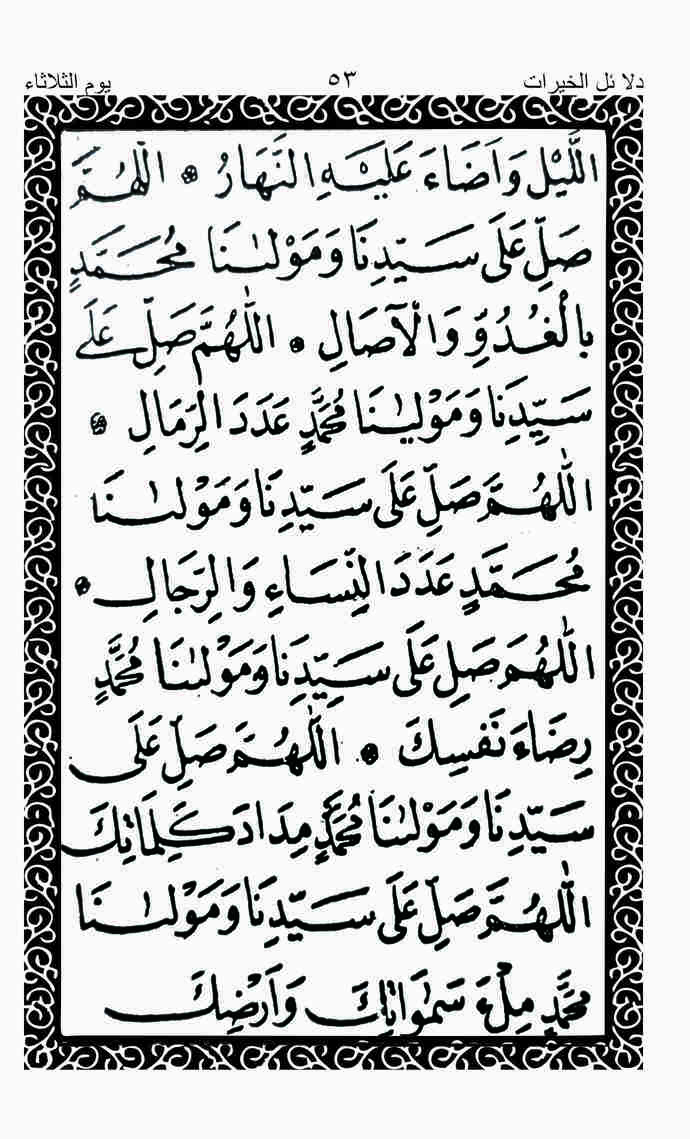 دلائل الخيرات ٥٣ يوم الثلاثاء
اللَّيْلُ وَاَضَاءَ عَلَيْهِ النَّهَارُ * اللّٰهُمَّ
صَلِّ عَلَى سَيِّدِنَا وَمَوْلٰىنَا مُحَمَّدٍ
بِالْغُدُوِّ وَالْآصَالِ * اللّٰهُمَّ صَلِّ عَلَى
سَيِّدِنَا وَمَوْلٰينَا مُحَمَّدٍ عَدَدَ الرِّمَالِ *
اللّٰهُمَّ صَلِّ عَلَى سَيِّدِنَا وَمَوْلٰىنَا
مُحَمَّدٍ عَدَدَ النِّسَاءِ وَالرِّجَالِ *
اللّٰهُمَّ صَلِّ عَلَى سَيِّدِنَا وَمَوْلٰىنَا مُحَمَّدٍ
رِضَاءَ نَفْسِكَ * اللّٰهُمَّ صَلِّ عَلَى
سَيِّدِنَا وَمَوْلٰىنَا مُحَمَّدٍ مِدَادَ كَلِمَاتِكَ
اللّٰهُمَّ صَلِّ عَلَى سَيِّدِنَا وَمَوْلٰىنَا
مُحَمَّدٍ مِلْءَ سَمٰوَاتِكَ وَاَرْضِكَ